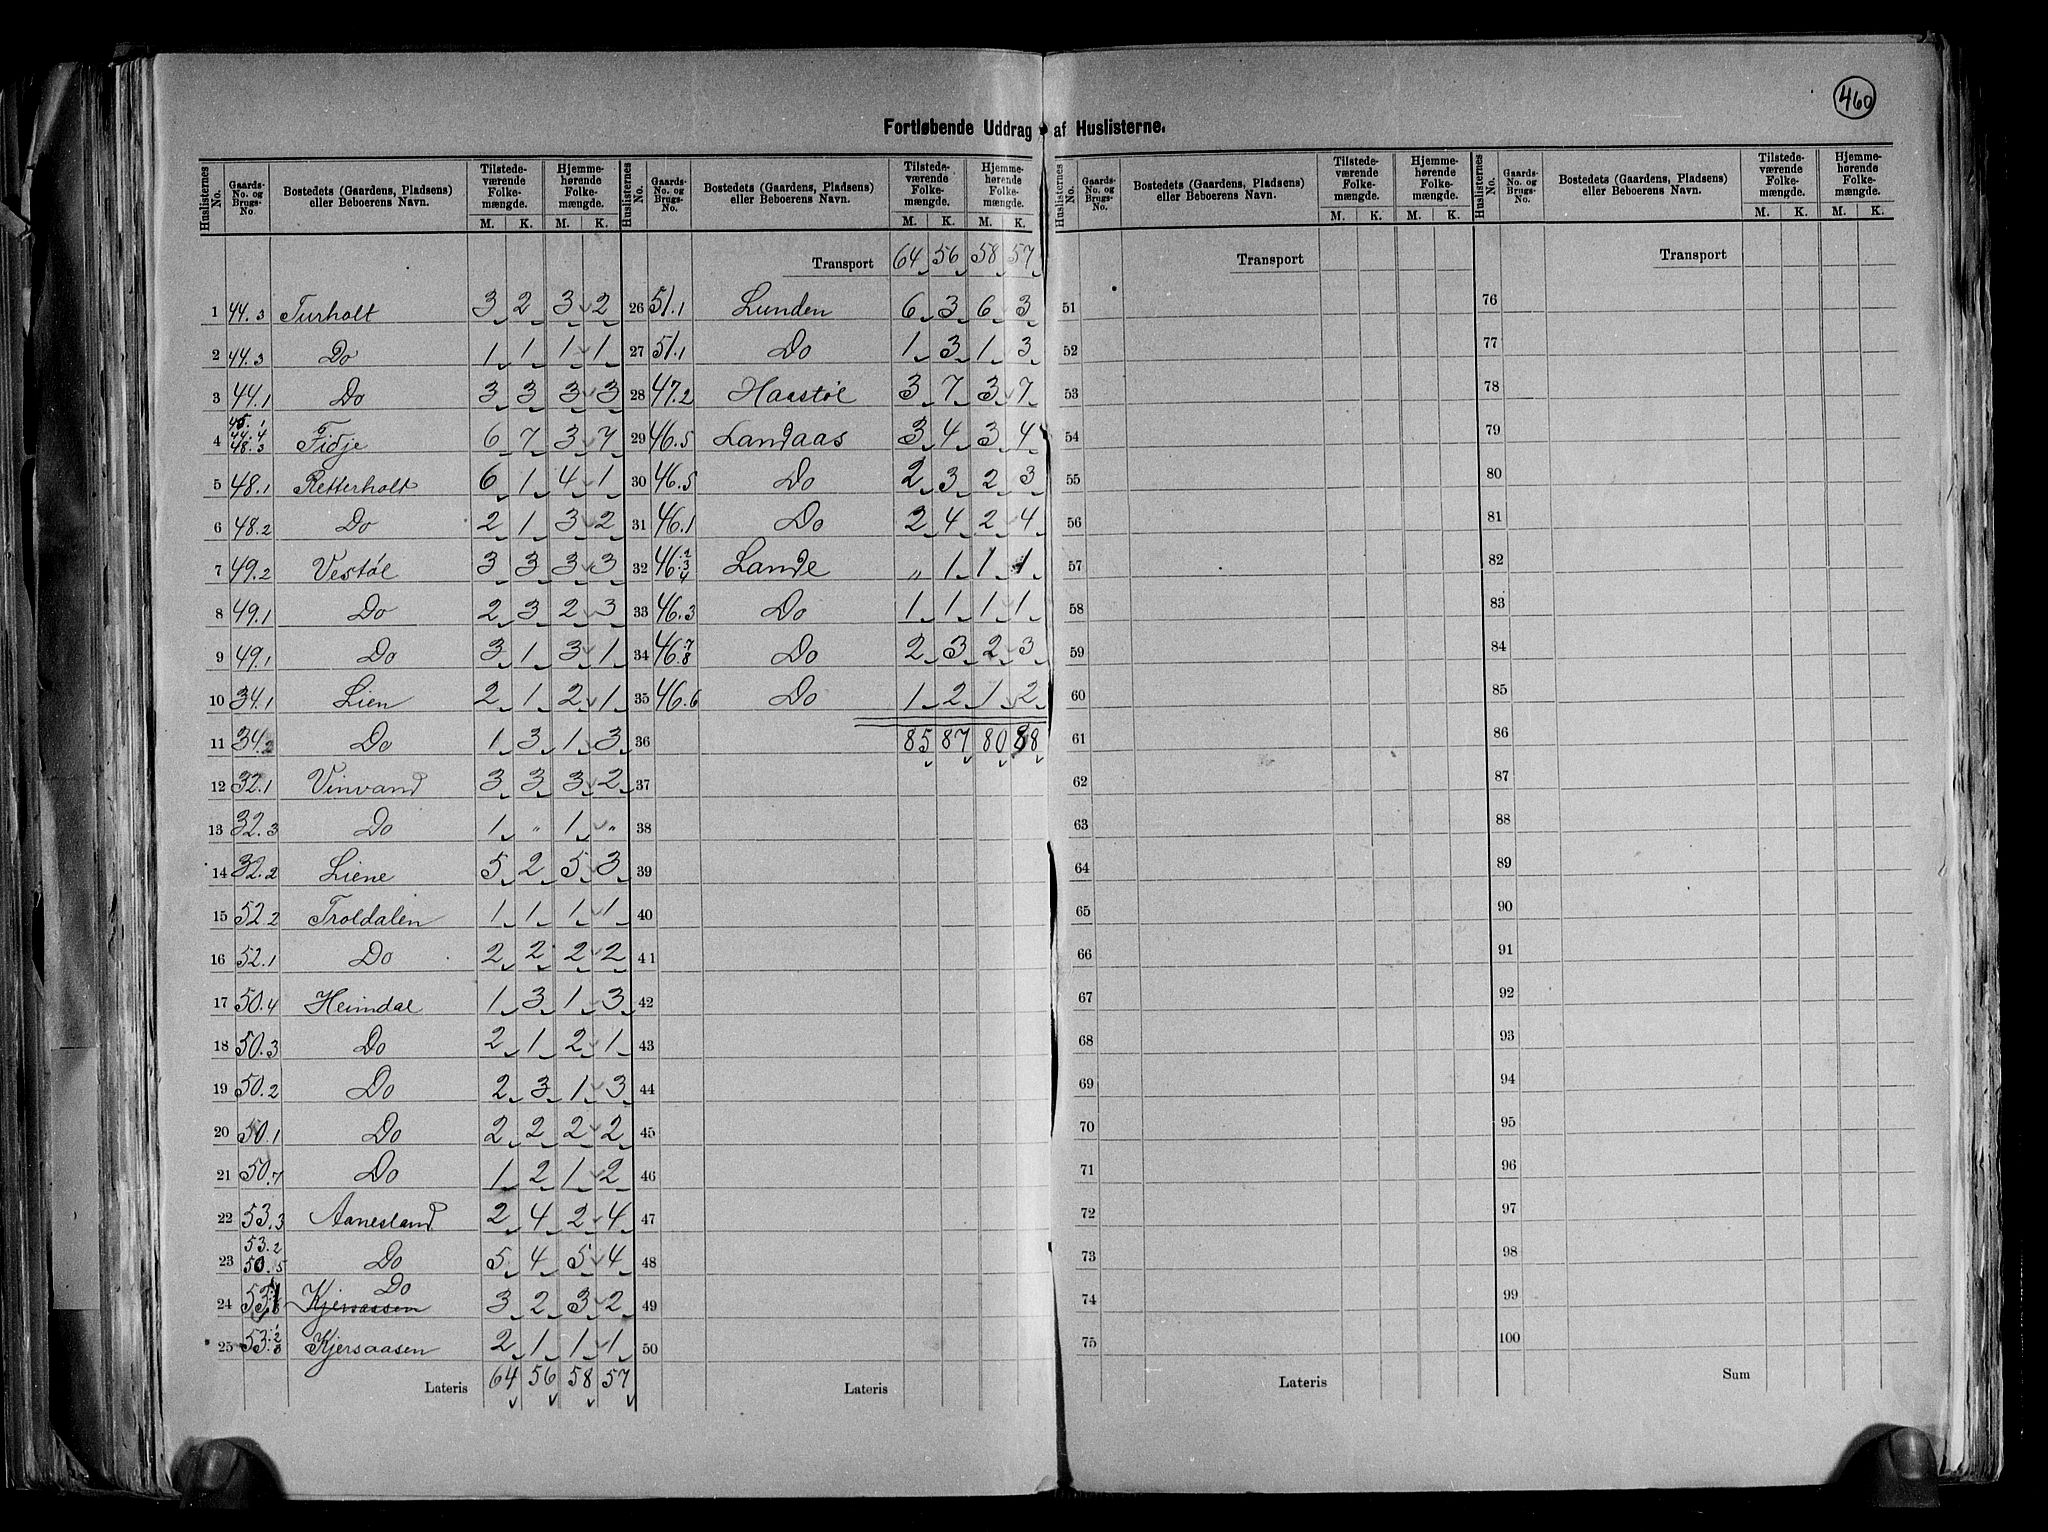 460
Fortløbende Uddrag af Huslisterne.
Huslisternes No. | Gaards-No. og Brugs-No. | Bostedets (Gaardens, Pladsens) eller Beboerens Navn. | Tilstedeværende Folkemængde. M. K. | Hjemmehørende Folkemængde. M. K.
1 44.3 Turholt 3 2 3 2
2 44.3 Do 1 1 1 1
3 44.1 Do 3 3 3 3
4 45.1 44.4 48.3 Fidje 6 7 3 7
5 48.1 Retterholt 6 1 4 1
6 48.2 Do 2 1 3 2
7 49.2 Vestøl 3 3 3 3
8 49.1 Do 2 3 2 3
9 49.1 Do 3 1 3 1
10 34.1 Lien 2 1 2 1
11 34.2 Do 1 3 1 3
12 32.1 Vinvand 3 3 3 2
13 32.3 Do 1 " 1 "
14 32.2 Liene 5 2 5 3
15 52.2 Troldalen 1 1 1 1
16 52.1 Do 2 2 2 2
17 50.4 Heimdal 1 3 1 3
18 50.3 Do 2 1 2 1
19 50.2 Do 2 3 1 3
20 50.1 Do 2 2 2 2
21 50.7 Do 1 2 1 2
22 53.3 Aanesland 2 4 2 4
23 53.2 50.5 Do 5 4 5 4
24 53.1 Do Kjersaasen 3 2 3 2
25 53. Kjersaasen 2 1 1 1
Lateris 64 56 58 57
Huslisternes No. | Gaards-No. og Brugs-No. | Bostedets (Gaardens, Pladsens) eller Beboerens Navn. | Tilstedeværende Folkemængde. M. K. | Hjemmehørende Folkemængde. M. K.
Transport 64 56 58 57
26 51.1 Lunden 6 3 6 3
27 51.1 Do 1 3 1 3
28 47.2 Haastøl 3 7 3 7
29 46.5 Landaas 3 4 3 4
30 46.5 Do 2 3 2 3
31 46.1 Do 2 4 2 4
32 46.2.3.4 Lande " 1 1 1
33 46.3 Do 1 1 1 1
34 46.7.8 Do 2 3 2 3
35 46.6 Do 1 2 1 2
36 85 87 80 88
37
38
39
40
41
42
43
44
45
46
47
48
49
50
Lateris
Huslisternes No. | Gaards-No. og Brugs-No. | Bostedets (Gaardens, Pladsens) eller Beboerens Navn. | Tilstedeværende Folkemængde. M. K. | Hjemmehørende Folkemængde. M. K.
Transport
51
52
53
54
55
56
57
58
59
60
61
62
63
64
65
66
67
68
69
70
71
72
73
74
75
Lateris
Huslisternes No. | Gaards-No. og Brugs-No. | Bostedets (Gaardens, Pladsens) eller Beboerens Navn. | Tilstedeværende Folkemængde. M. K. | Hjemmehørende Folkemængde. M. K.
Transport
76
77
78
79
80
81
82
83
84
85
86
87
88
89
90
91
92
93
94
95
96
97
98
99
100
Sum